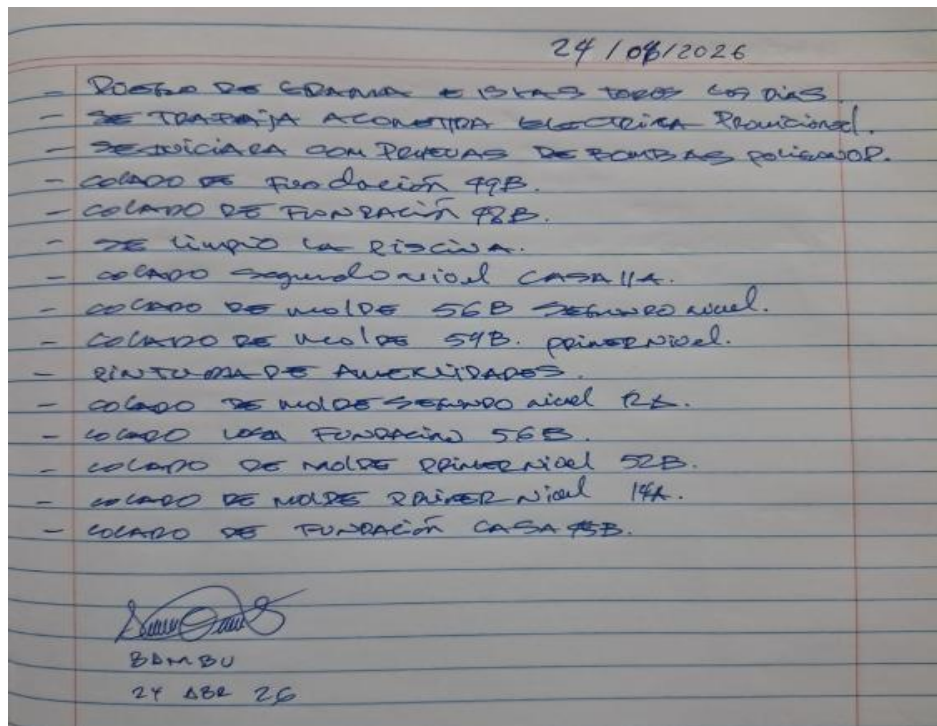 24/04/2026
- RIEGO DE GRAMA E ISLAS TODOS LOS DIAS
- SE TRABAJA ACOMETIDA ELECTRICA Provicional.
- SE INICIARA CON PRUEVAS DE BOMBAS POLIGONO P.
- COLADO DE Fundación 49B.
- COLADO DE FUNDACIÓN 48B.
- SE limpiO LA PISCINA.
- COLADO Segundo nivel CASA 11A.
- COLADO DE molDE 56B SEGUNDO nivel.
- COLADO DE molDE 54B. PRIMER Nivel.
- PINTURA DE AMENIDADES.
- COLADO DE MOLDE SEGUNDO nivel 12A.
- COLADO LOSA FUNDACIÓN 56B.
- COLADO DE MOLDE PRIMER Nivel 52B.
- COLADO DE MOLDE PRIMER Nivel 14A.
- COLADO DE FUNDACIÓN CASA B.
BAMBU
24 ABR 26